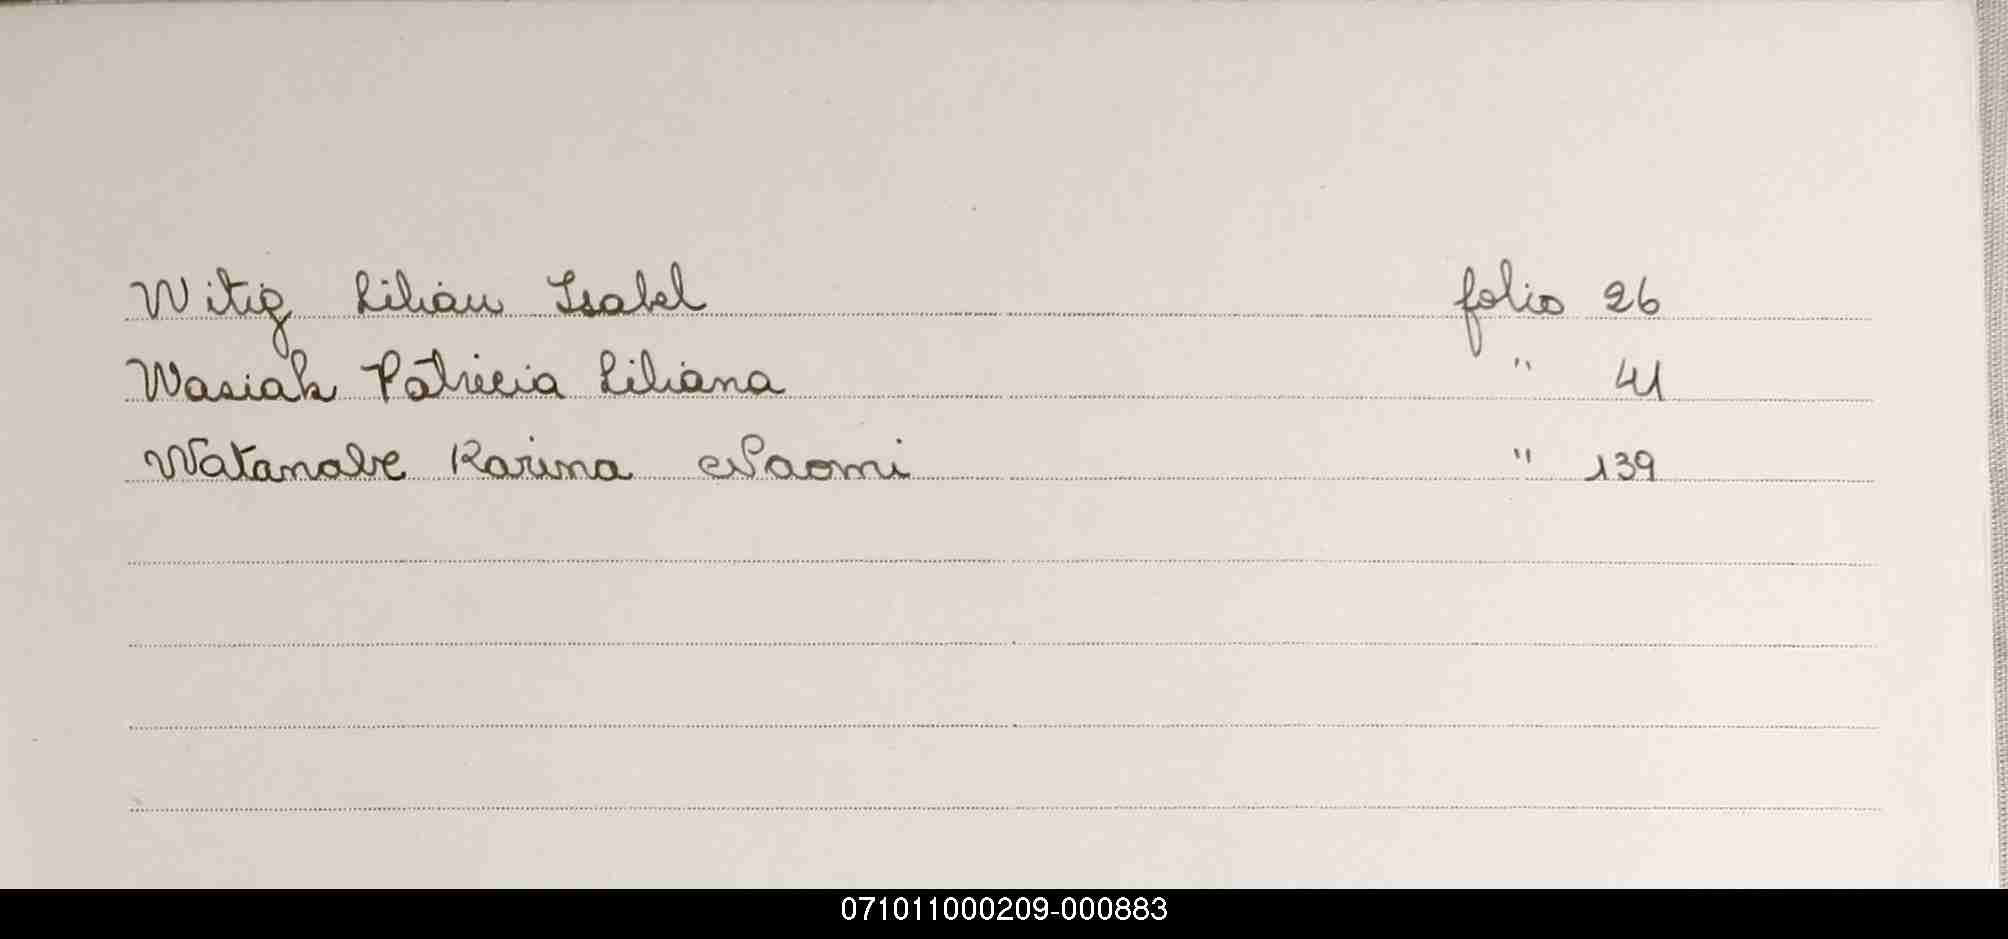 Witig Lilian Isabel folio 26
Wasiak Patricia Liliana " 41
Watanabe Karina Naomi " 139
071011000209-000883